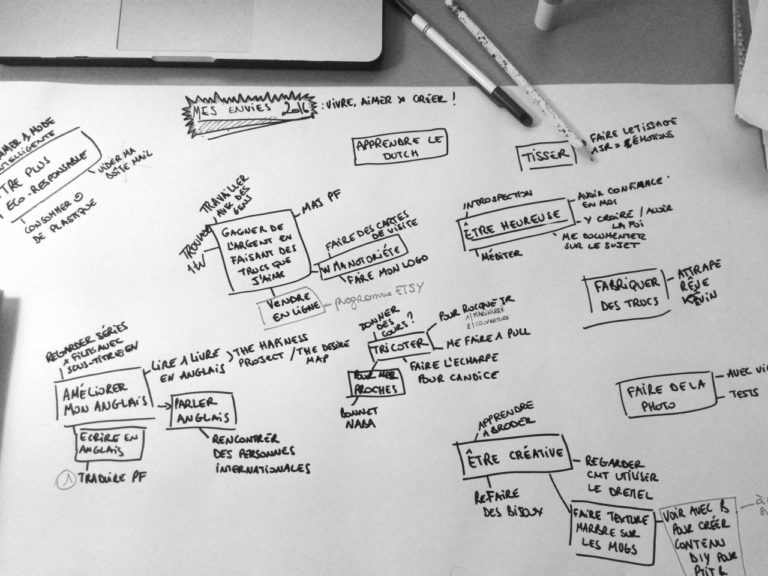 MES ENVIES 2016 : VIVRE, AIMER & CRÉER !
APPRENDRE LE
DUTCH
TISSER
FAIRE LE TISSAGE
ÉMOTIONS
1 MODE
INTELLIGENTE
ÊTRE PLUS
ECO-RESPONSABLE
VIDER MA
BOÎTE MAIL
CONSOMMER
DE PLASTIQUE
TRAVAILLER
AVEC DES
GENS
MAJ PF
TROUVER
1W
GAGNER DE
L'ARGENT EN
FAISANT DES
TRUCS QUE
J'AIME
FAIRE DES CARTES
DE VISITE
W MA NOTORIÉTÉ
FAIRE MON LOGO
VENDRE
EN LIGNE
programme ETSY
INTROSPECTION
ÊTRE HEUREUSE
MÉDITER
AVOIR CONFIANCE
EN MOI
Y CROIRE / AVOIR
LA FOI
ME DOCUMENTER
SUR LE SUJET
FABRIQUER
DES TRUCS
ATTRAPE
RÊVE
KÉVIN
DONNER
DES
COURS ?
TRICOTER
POUR ROCQUE JR
1/ MARINIÈRE
2/ COUVERTURE
ME FAIRE 1 PULL
FAIRE L'ECHARPE
POUR CANDICE
POUR MES
PROCHES
BONNET
NABA
REGARDER SÉRIES
& FILMS AVEC
SOUS-TITRE EN
AMÉLIORER
MON ANGLAIS
LIRE 1 LIVRE
EN ANGLAIS
THE HAPINESS
PROJECT / THE DESIRE
MAP
PARLER
ANGLAIS
RENCONTRER
DES PERSONNES
INTERNATIONALES
ECRIRE EN
ANGLAIS
1 TRADUIRE PF
FAIRE DE LA
PHOTO
AVEC
TESTS
APPRENDRE
A BRODER
ÊTRE CRÉATIVE
REFAIRE
DES BIJOUX
REGARDER
CMT UTILISER
LE DREMEL
FAIRE TEXTURE
MARBRE SUR
LES MUGS
VOIR AVEC B
POUR CRÉER
CONTENU
DIY POUR
PTIT B
à